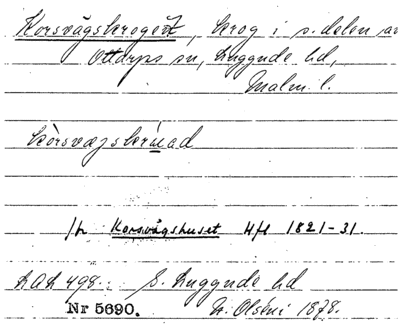 Korsvägskroget, krog i s. delen av
Ottarps sn, Luggude hd,
Malm. l.
kòrsvæjskrὰ͕ad
/h Korsvägshuset Hfl 1821-31.
LAL 498: S. Luggude hd
Nr 5690. N. Olséni 1878.